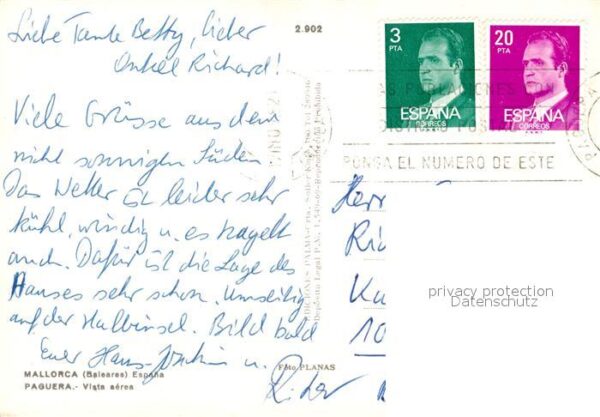 Liebe Tante Betty, lieber
Onkel Richard!
Viele Grüsse aus dem
nicht sonnigen Süden.
Das Wetter ist leider sehr
kühl, windig u. es hagelt
auch. Dafür ist die Lage des
Hauses sehr schön. Umseitig
auf der Halbinsel. Bild bald
Euer Hans-Joachim u.
MALLORCA (Baleares) España
PAGUERA.- Vista aérea
2.902
Foto PLANAS
3
PTA
ESPAÑA
CORREOS
20
PTA
ESPAÑA
CORREOS
PONGA EL NUMERO DE ESTE
Herr
Ric
Ku
10
privacy protection
Datenschutz